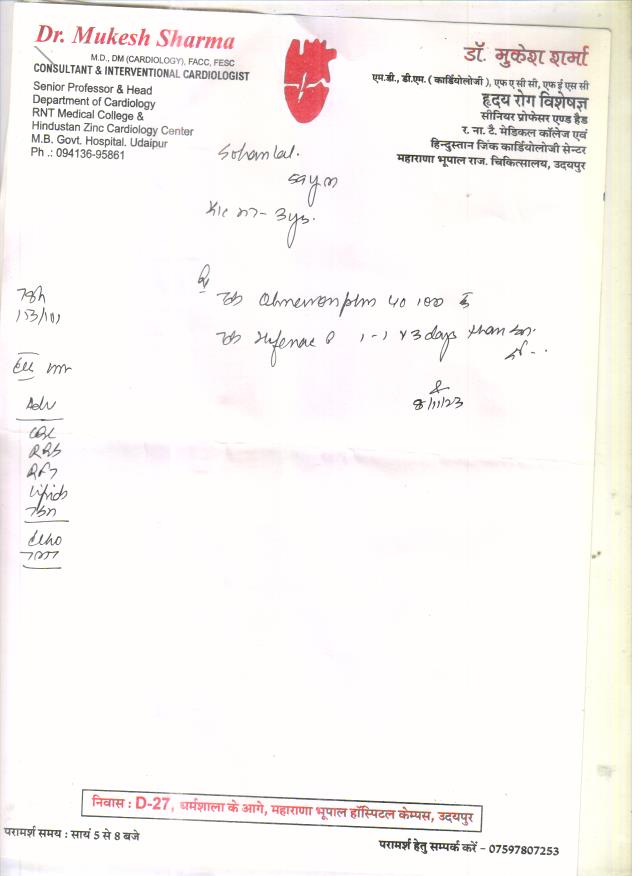 Dr. Mukesh Sharma
M.D., DM (CARDIOLOGY), FACC, FESC
CONSULTANT & INTERVENTIONAL CARDIOLOGIST
Senior Professor & Head
Department of Cardiology
RNT Medical College &
Hindustan Zinc Cardiology Center
M.B. Govt. Hospital. Udaipur
Ph .: 094136-95861
डॉ. मुकेश शर्मा
एम.डी., डी.एम. ( कार्डियोलॉजी ), एफ ए सी सी, एफ ई एस सी
हृदय रोग विशेषज्ञ
सीनियर प्रोफेसर एण्ड हैड
र. ना. टै. मेडिकल कॉलेज एवं
हिन्दुस्तान जिंक कार्डियोलॉजी सेन्टर
महाराणा भूपाल राज. चिकित्सालय, उदयपुर
Sohanlal.
3yrs.
78/h
153/101
40
1-1 x 3 days than
8/11/23
Adv
CBC
RBS
RFT
Lipids
TSH
Echo
TMT
निवास : D-27, धर्मशाला के आगे, महाराणा भूपाल हॉस्पिटल केम्पस, उदयपुर
परामर्श समय : सायं 5 से 8 बजे
परामर्श हेतु सम्पर्क करें – 07597807253